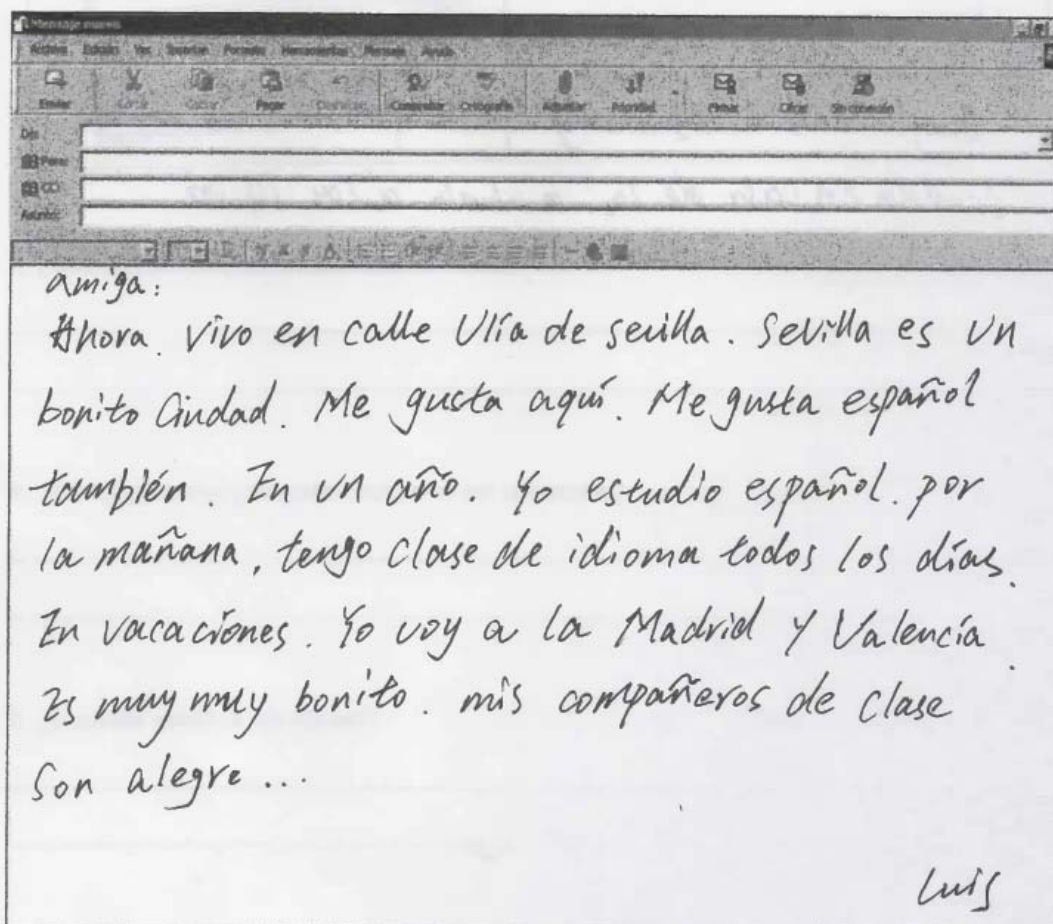 Mensaje nuevo
Archivo Edición Ver Insertar Formato Herramientas Mensaje Ayuda
Enviar Cortar Copiar Pegar Deshacer Comprobar Ortografía Adjuntar Prioridad Firmar Cifrar Sin conexión
De:
Para:
CC:
Asunto:
amiga:
Ahora. vivo en calle Ulía de sevilla. Sevilla es un
bonito Ciudad. Me gusta aquí. Me gusta español
también. En un año. Yo estudio español. por
la mañana, tengo clase de idioma todos los días.
En vacaciones. Yo voy a la Madrid y Valencia.
Es muy muy bonito. mis compañeros de clase
son alegre...
Luis